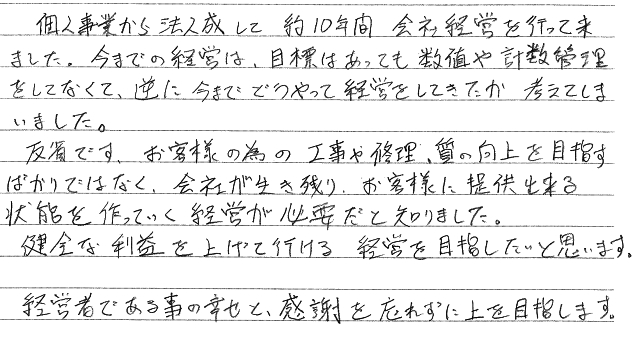 個人事業から法人成して約10年間会社経営を行って来
ました。今までの経営は、目標はあっても数値や計数管理
をしてなくて、逆に今までどうやって経営をしてきたか考えてしま
いました。
反省です、お客様の為の工事や修理、質の向上を目指す
ばかりではなく、会社が生き残り、お客様に提供出来る
状態を作っていく経営が必要だと知りました。
健全な利益を上げて行ける経営を目指したいと思います。
経営者である事の幸せと、感謝を忘れずに上を目指します。